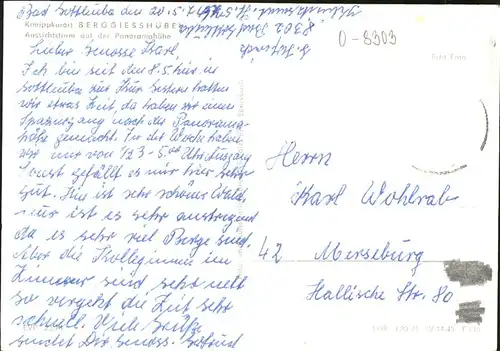 Bad Gottleuba den 20.5.71
Kneippkurort BERGGIESSHÜBEL
Aussichtsturm auf der Panoramahöhe
8302 Bad Gottleuba
0-8303
Foto: Fran
Lieber Genosse Karl,
Ich bin seit dem 8.5. hier in
Gottleuba zur Kur. Gestern hatten
wir etwas Zeit, da haben wir einen
Spaziergang nach der Panorama-
höhe gemacht. In der Woche haben
wir nur von 1/2 3 - 5.00 Uhr Ausgang
Sonst gefällt es mir hier sehr
gut. Hier ist sehr schöner Wald,
nur ist es sehr anstrengend
da es sehr viel Berge sind.
Aber die Kolleginnen im
Zimmer sind sehr nett
so vergeht die Zeit sehr
schnell. Viele Grüße
sendet Dir Genoss. Gertrud
Herrn
Karl Wohlrab
42 Merseburg
Hallische Str. 80